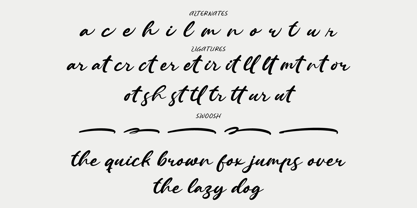 ALTERNATES
a c e h i l m n o r t u r
LIGATURES
ar at cr ct er et ir it ll lt mt nt or
ot sh st tl tr tt ur ut
SWOOSH
the quick brown fox jumps over
the lazy dog